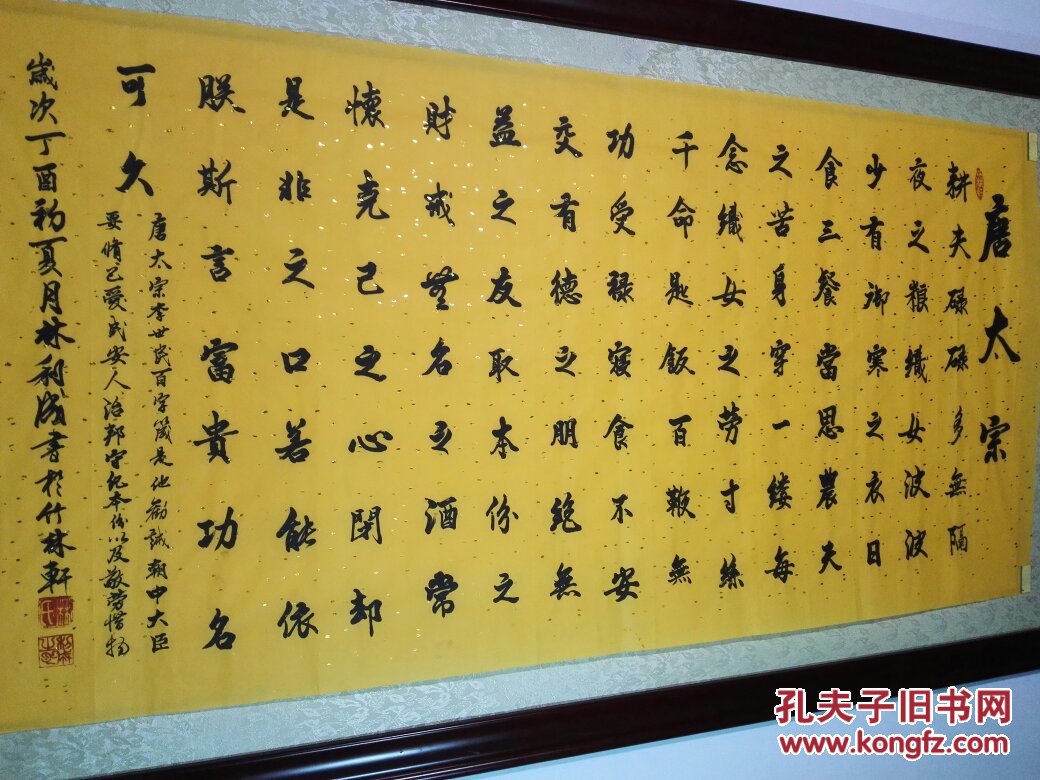 唐太宗
耕夫碌碌多無隔
夜之粮織女波波
少有御寒之衣日
食三餐當思農夫
之苦身穿一缕每
念織女之劳寸絲
千命匙飯百鞭無
功受禄寝食不安
交有德之朋絶無
益之友取本份之
財戒無名之酒常
懷克己之心閉却
是非之口若能依
朕斯言富貴功名
可久
唐太宗李世民百字箴是他勸誡朝中大臣
要脩己愛民安人治邦守紀本份以及敬劳惜物
歲次丁酉初夏月林利書於竹林軒
孔夫子旧书网
www.kongfz.com